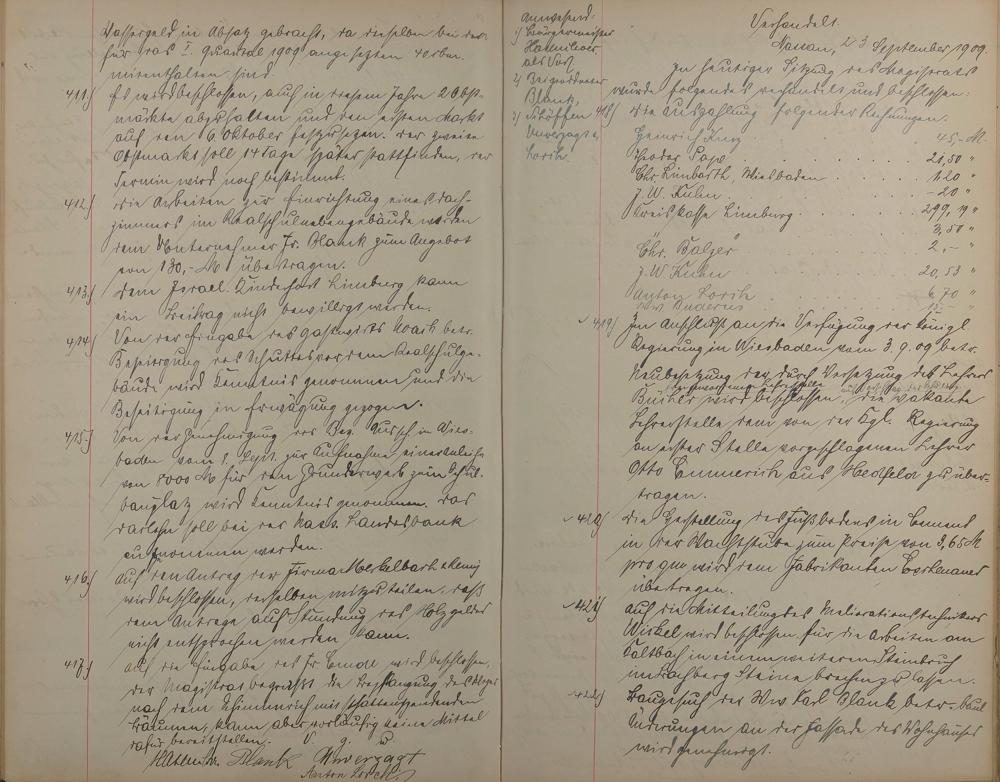 Wassergeld in Absatz gebracht, da dieselben bei der
für das I. Quartal 1909 angesetzten 40 cbm.
mitenthalten sind.
411) Es wird beschlossen, auch in diesem Jahre 2 Obst-
märkte abzuhalten und den ersten Markt
auf den 6 Oktober festzusetzen. Der zweite
Obstmarkt soll 14 Tage später stattfinden, der
Termin wird noch bestimmt.
412) Die Arbeiten zur Einrichtung eines
zimmers im Realschulnebengebäude werden
dem Unternehmer Fr. Blank zum Angebot
von 130,- M übertragen.
413) Dem Israel. Kinderhort Limburg kann
ein Beitrag nicht bewilligt werden.
414) Von der Eingabe des Gastwirts betr.
Beseitigung des Schuttes vor dem Realschulge-
bäude wird Kenntnis genommen und die
Beseitigung in Erwägung gezogen.
415) Von der Genehmigung des Bez. Aussch. in Wies-
baden vom Sept. zur Aufnahme einer Anleihe
von 8000 M für den Grunderwerb zum Schul-
bauplatz wird Kenntnis genommen. Das
Darlehn soll bei der Nass. Landesbank
aufgenommen werden.
416) Auf den Antrag der Firma
wird beschlossen, derselben mitzuteilen, daß
dem Antrage auf Stundung des Holzgeldes
nicht entsprochen werden kann.
417) Auf die Eingabe des Fr wird beschlossen,
der Magistrat begrüßt die Bepflanzung des Weges
nach dem mit schattenspendenden
Bäumen, kann aber vorläufig keine Mittel
dafür bereitstellen. V. g. u
Blank Unverzagt
Anton Lorch
Anwesend:
1) Bürgermeister
als Vors.
2) Beigeordneter
Blank,
3) Schöffen
Unverzagt u
Lorch.
Verhandelt.
Nassau, 23 September 1909.
In heutiger Sitzung des Magistrats
wurde folgendes verhandelt und beschlossen:
418) Die Auszahlung folgender Rechnungen.
Heinrich 45,- M.
Theodor Pape 21,50 "
Chr. Limbarth, Wiesbaden 1.20 "
J. W. Kuhn -20 "
Kreiskasse Limburg 299,19 "
3,50 "
Chr. Balzer 2,- "
J. W Kuhn 20,53 "
Anton Lorch 6,70 "
Wwe Buderus
419) Im Anschluß an die Verfügung der Königl
Regierung in Wiesbaden vom 3.9.09 betr.
Neubesetzung der durch Versetzung des Lehrers
Bücher wird beschlossen, die vakante
Lehrerstelle dem von der Kgl. Regierung
an erster Stelle vorgeschlagenen Lehrer
Otto Emmerich aus zu über-
tragen.
420) Die Herstellung des Fußbodens in Cement
in der Wachtstube zum Preise von 3,65 M
pro qm wird dem Fabrikanten
übertragen.
421) Auf die Mitteilung des Meliorationstechnikers
wird beschlossen für die Arbeiten am
Kaltbach in einem weiteren Steinbruch
im Steine brechen zu lassen.
422) Baugesuch der Wwe Karl Blank betr. baul
Änderungen an der Fassade des Wohnhauses
wird genehmigt.